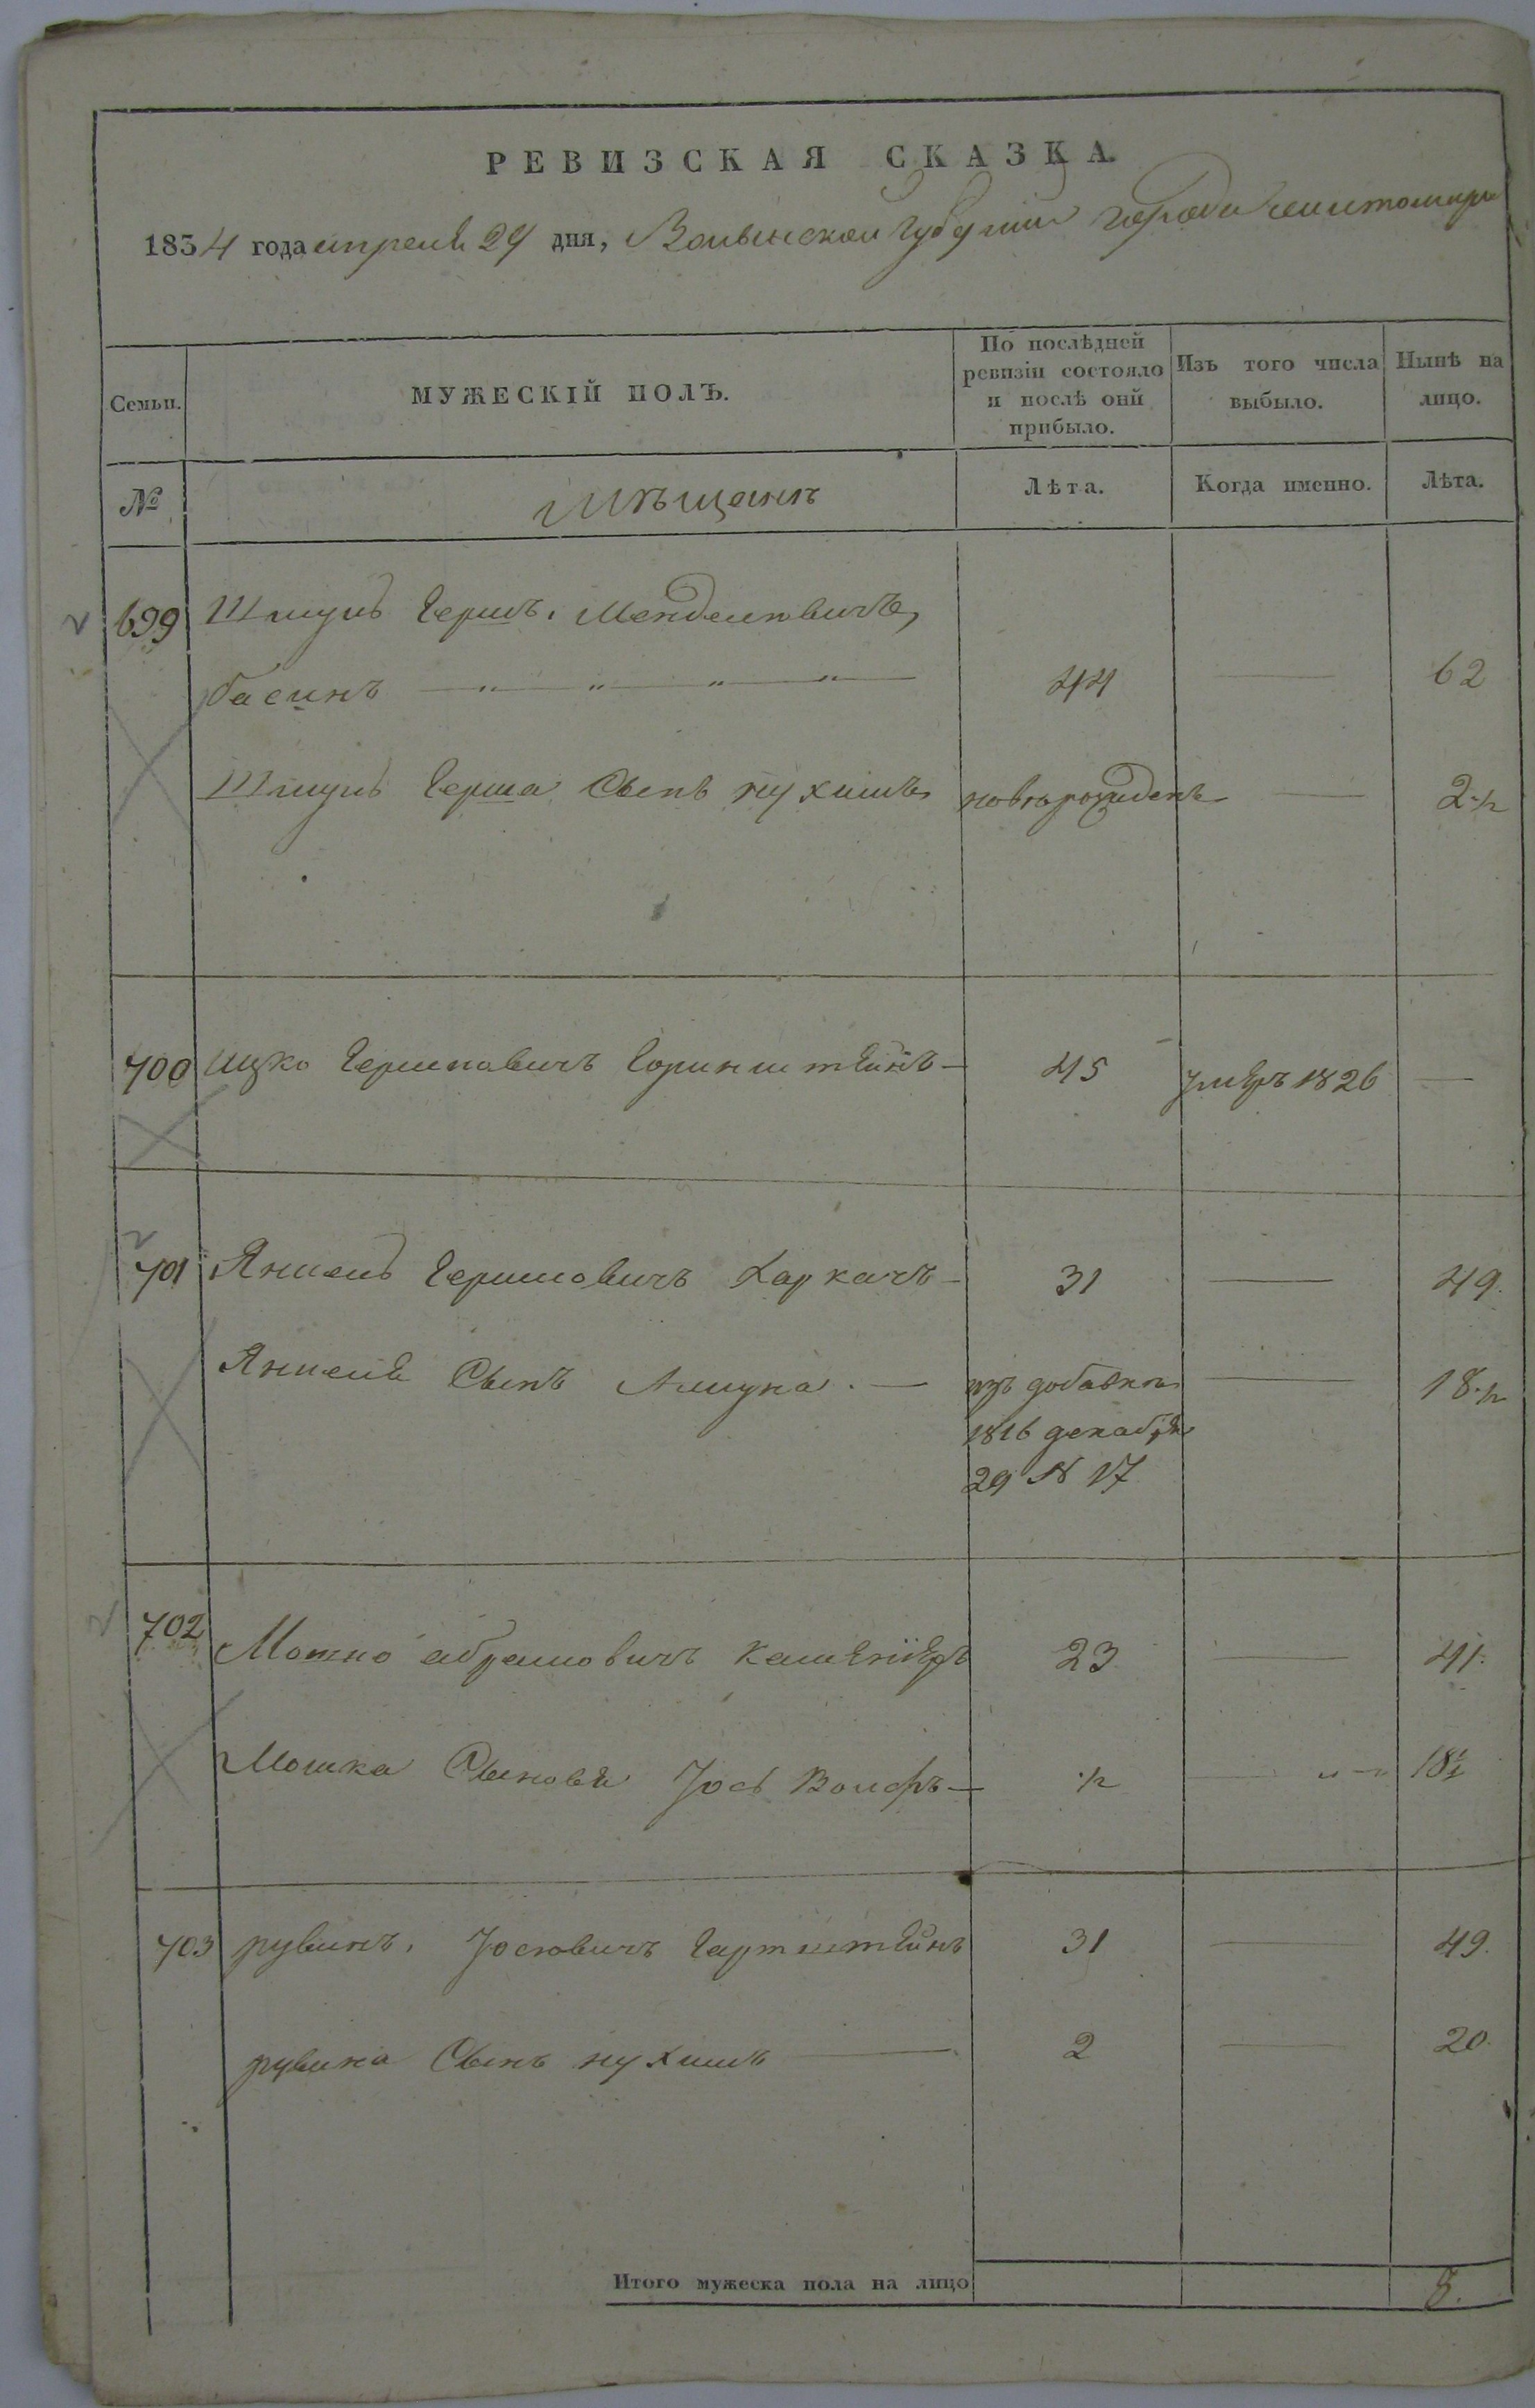 РЕВИЗСКАЯ СКАЗКА.
1834 года апреля 29 дня, Волынской Губернии города Житомира
Семьи. МУЖЕСКІЙ ПОЛЪ. По послѣдней ревизіи состояло и послѣ оній прибыло. Изъ того числа выбыло. Нынѣ на лицо.
№ Мѣщанъ Лѣта. Когда именно. Лѣта.
699 Шмуль Гершъ. Менделювичъ
басинъ — " — " — " — " — 44 — 62
Шмуль Герша Сынъ нухимъ новорожденъ — 2 ½
700 ицко Гершковичъ Горинштейнъ — 45 умеръ 1826 —
701 Яншель Гершковичъ Харкачъ — 31 — 49.
Яншеля Сынъ — изъ добавки — 18 ½
1816 декабря
29 N 17
702 Мошко абрамовичъ 23 — 41.
Мошка Сыновя Јось Волфъ — ½ — " — 18 ½
703 рувинъ. Јосковичъ Гартштейнъ 31 — 49.
рувина Сынъ нухимъ — 2 — 20.
Итого мужеска пола на лицо 8.